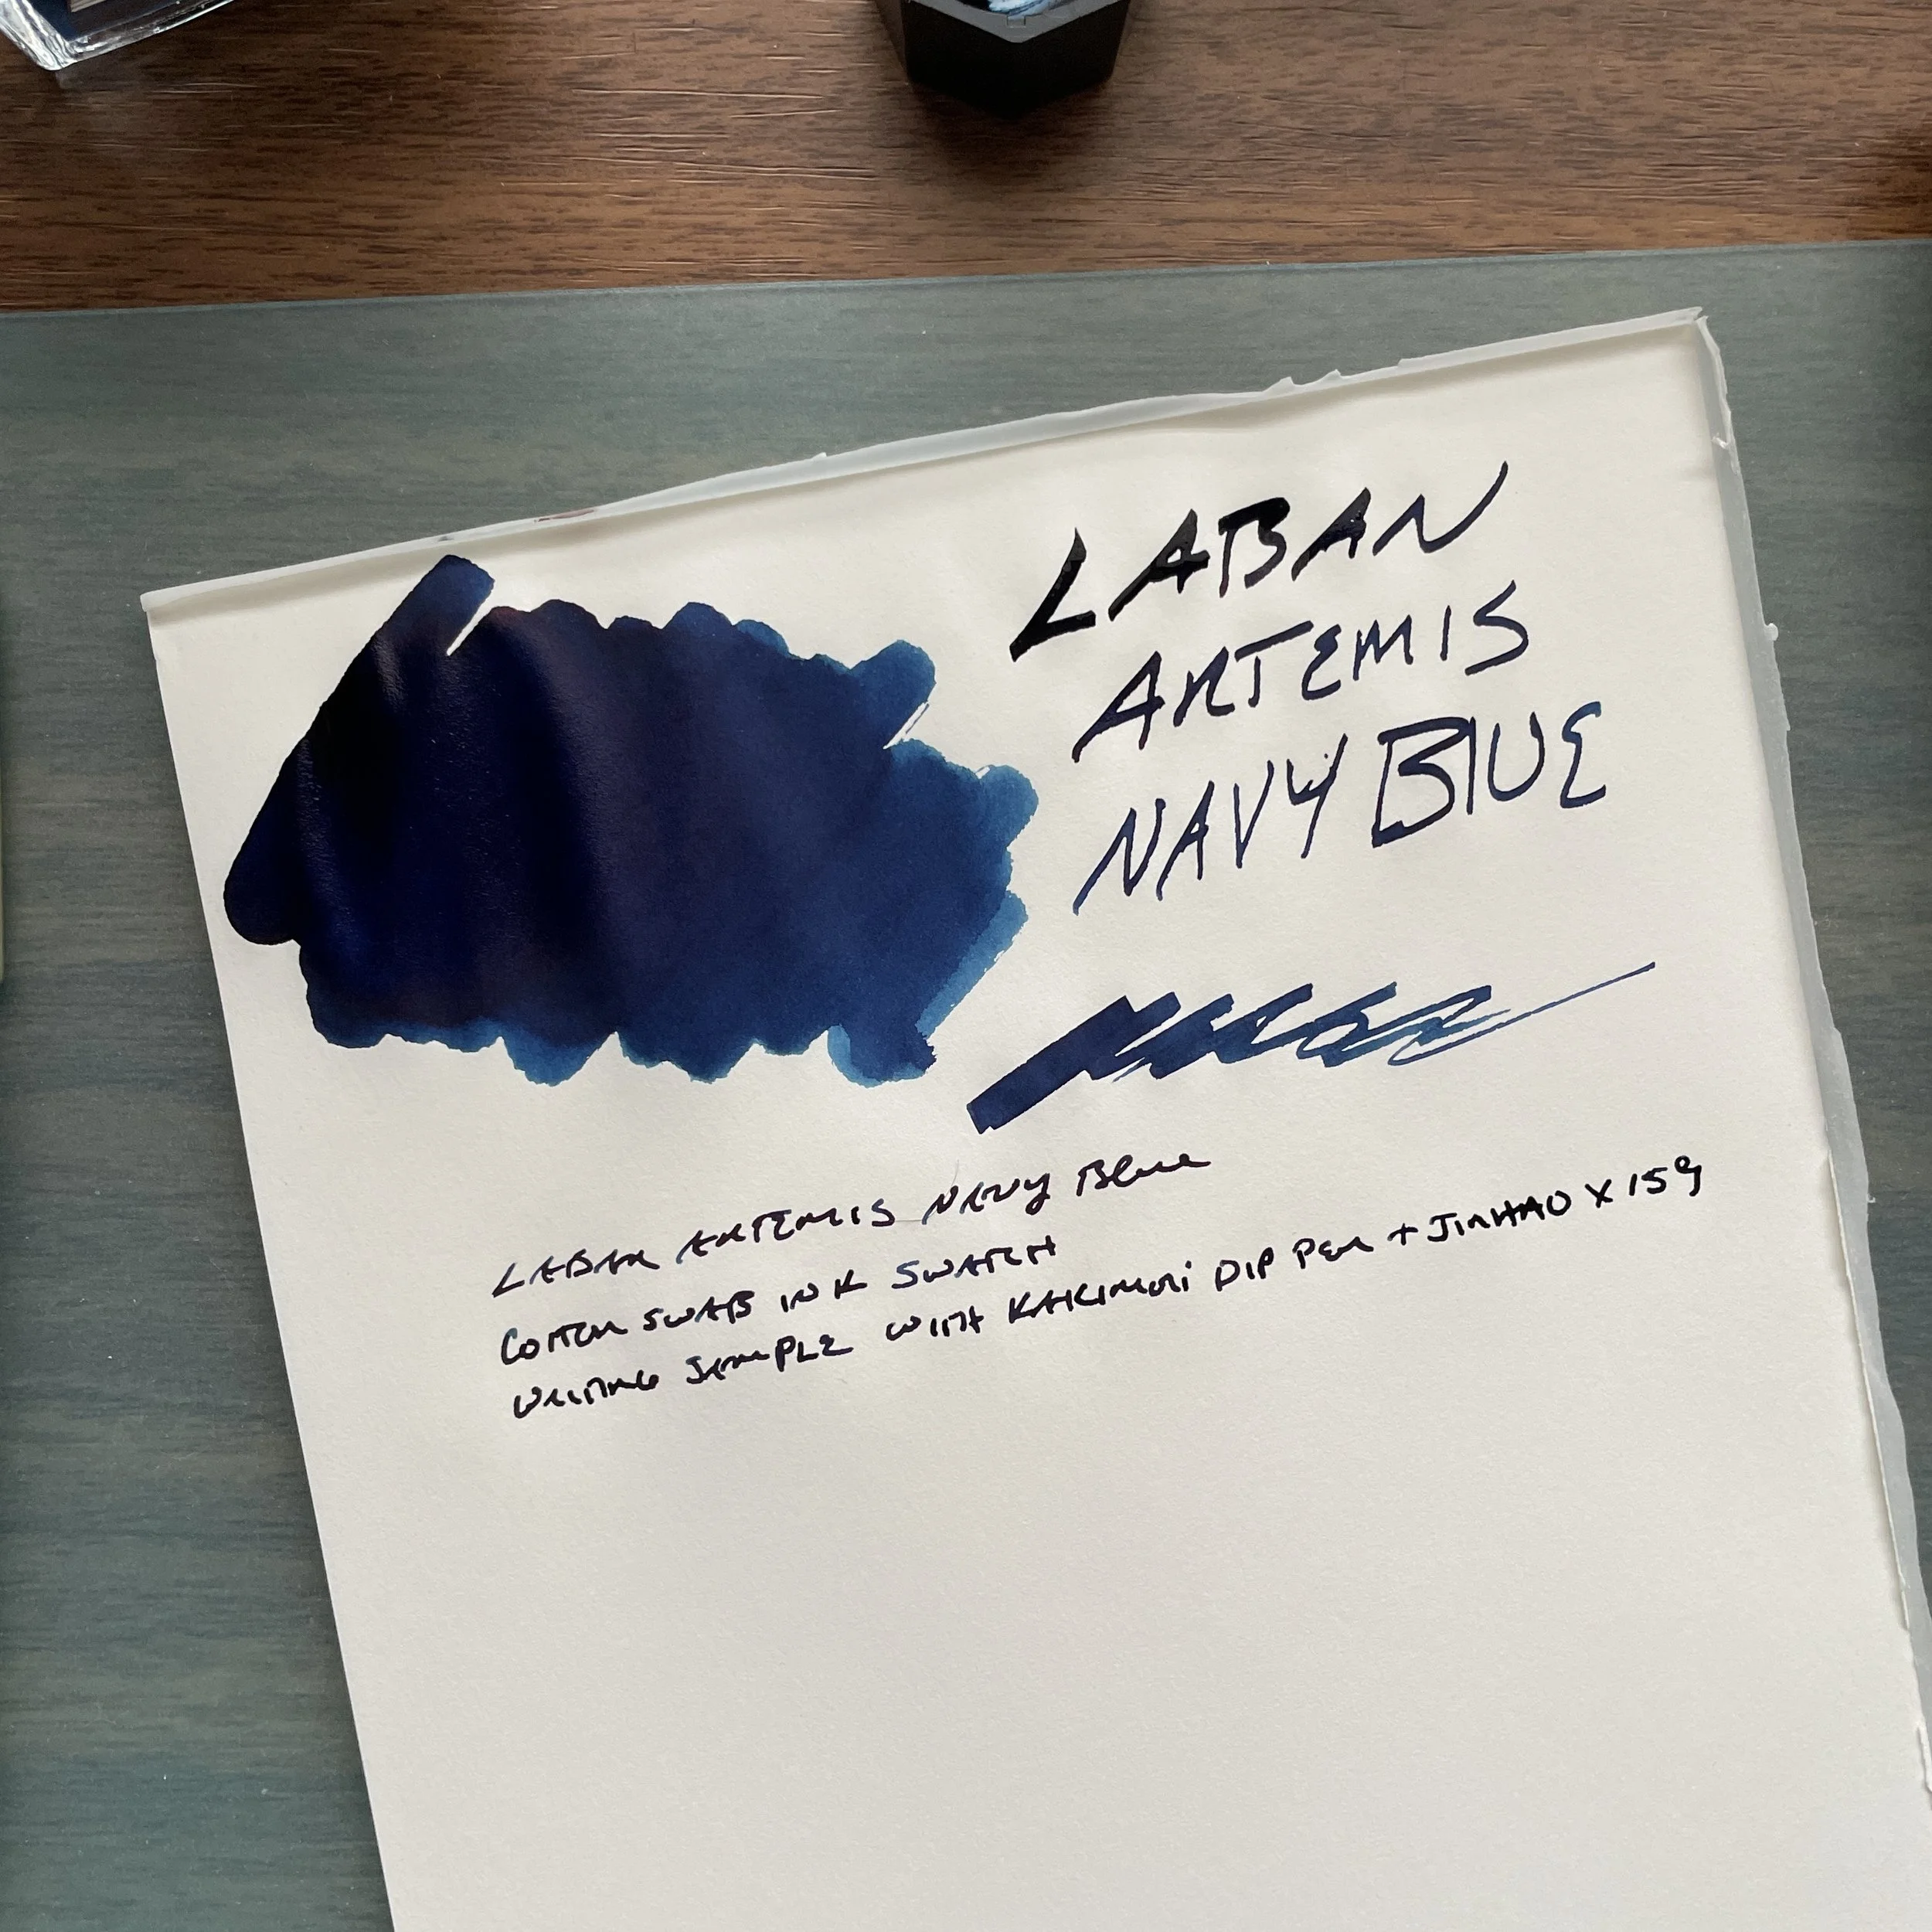 LABAN
ARTEMIS
NAVY BLUE
LABAN ARTEMIS NAVY Blue
COTTON SWAB INK SWATCH
WRITING SAMPLE WITH KAKIMORI DIP PEN + JINHAO X159